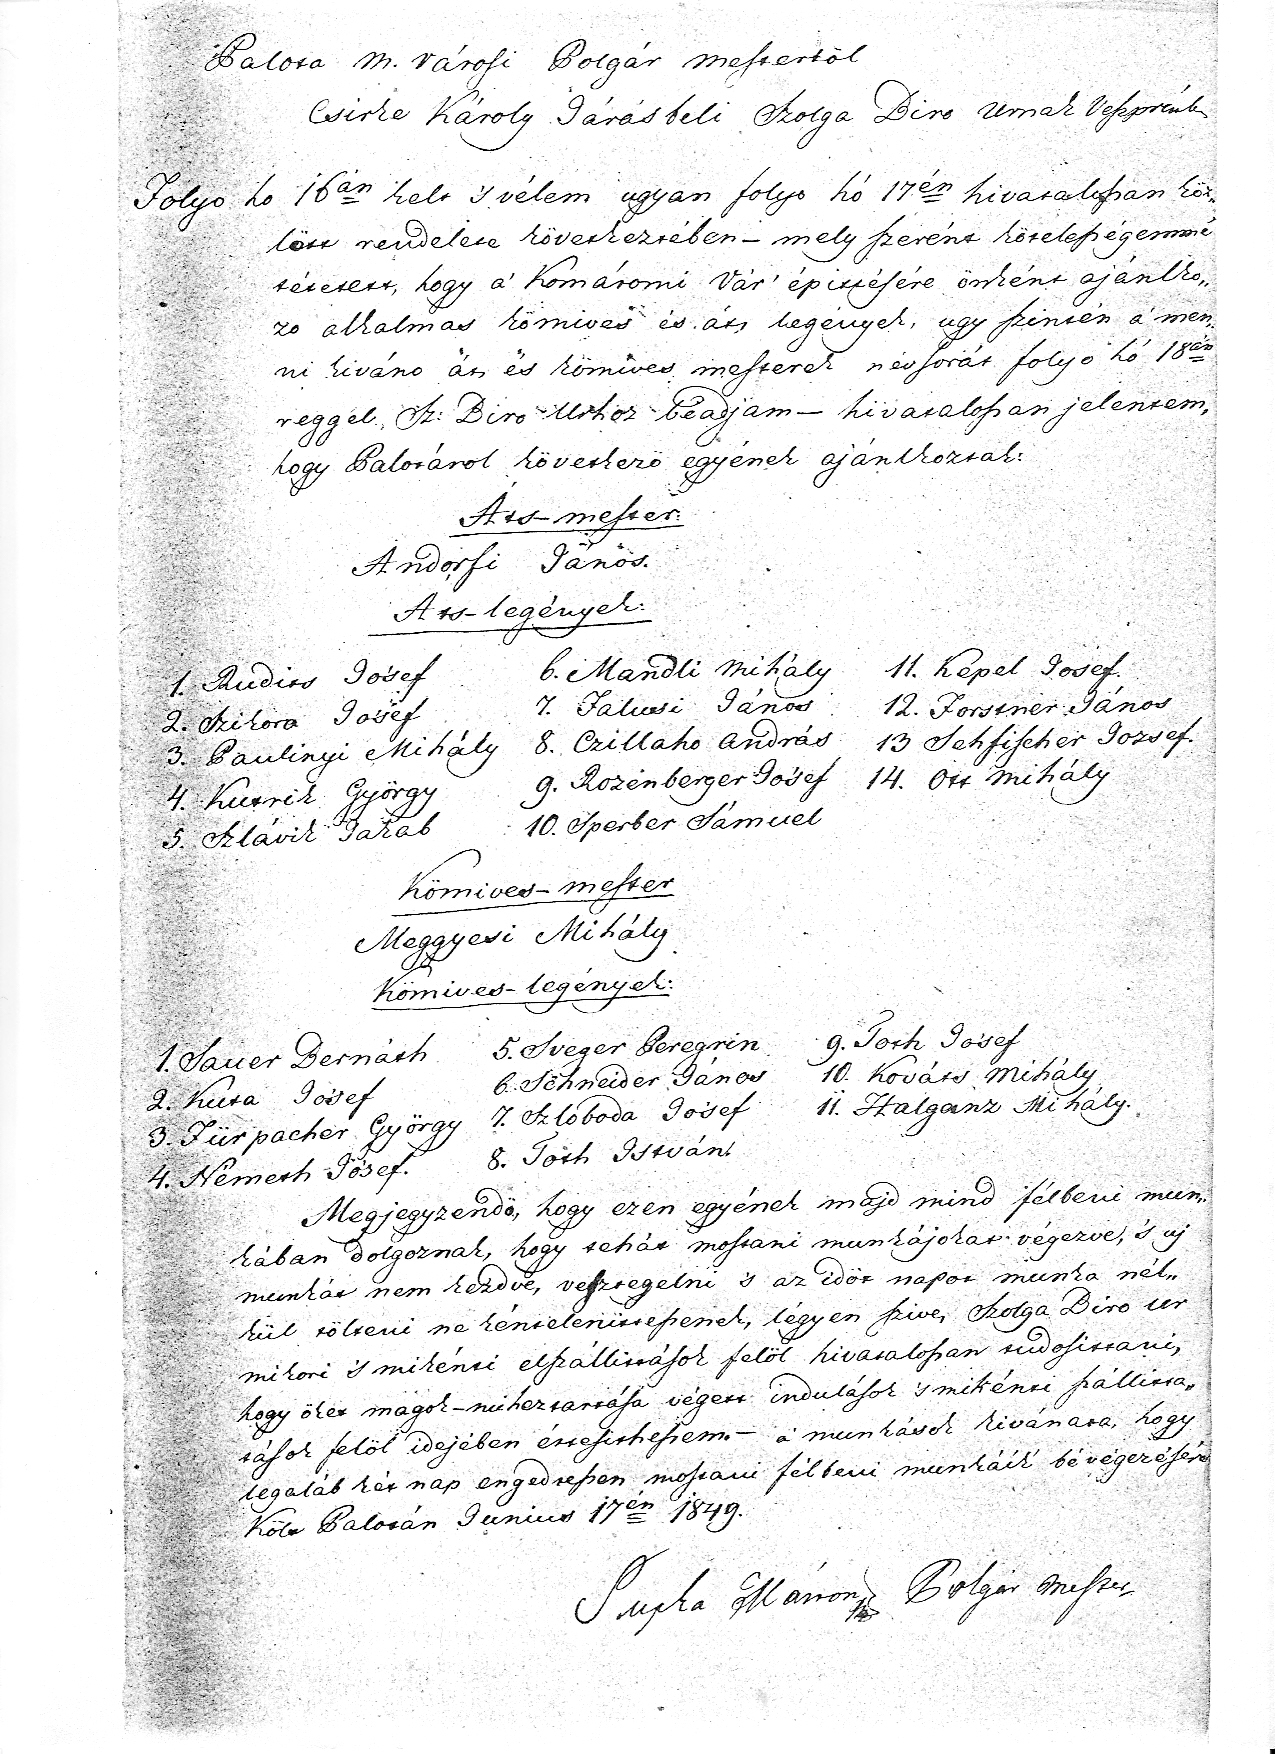 Palota m. városi Polgár mestertöl
Csirke Károly Járásbeli Szolga Biro Urnak
Folyo ho 16án kelt 's vélem ugyan folyo hó 17én hivatalossan köz„
lött rendelete következtében – mely szerént kötelességemmé
tétetett, hogy a' Komáromi Vár' épittésére önként ajánlko„
zo alkalmas kömives és áts legények, ugy szintén a' men„
ni kiváno áts és kömives mesterek névsorát folyo hó 18án
reggel Sz: Biro Urhoz béadjam – hivatalossan jelentem,
hogy Palotárol következö egyének ajánlkoztak:
Áts-mester:
Andorfi János.
Áts-legények:
1. Rudits Jósef 6. Mandli Mihály 11. Képel Josef.
2. Szikora Josef 7. Falusi János 12. Forstner János
3. Paulinyi Mihály 8. Czillaho András 13 Sehfischer Jozsef.
4. Kutrik György 9. Rozenberger Jósef 14. Ott Mihály
5. Szlávik Jakab 10. Sperber Sámuel
Kömives-mester
Meggyesi Mihály
Kömives-legények:
1. Sauer Bernáth 5. Sveger Peregrin 9. Toth Jósef
2. Kuta Jósef 6. Schneider János 10. Kováts Mihály
3. Fürpacher György 7. Szloboda Jósef 11. Halganz Mihály.
4. Németh Jósef. 8. Tóth István.
Megjegyzendö, hogy ezen egyének majd mind félbeni mun„
kában dolgoznak, hogy tehát mostani munkájokat végezve, 's uj
munkát nem kezdve, vesztegelni 's az idöt napot munka nél„
kül tölteni ne kéntelenittessenek, légyen szive, Szolga Biro ur
mikori 's mikénti elszállittások felöl hivatalossan tudosittani,
hogy öket magok-mihez tartása végett indulások 's mikénti szállitta„
tások felöl idejében értesithessem. – a' munkások kivánata, hogy
legaláb két nap engedtessen mostani félbeni munkáik bévégezésére
Költ Palotán Junius 17én 1849.
Supka Márton Polgár mester